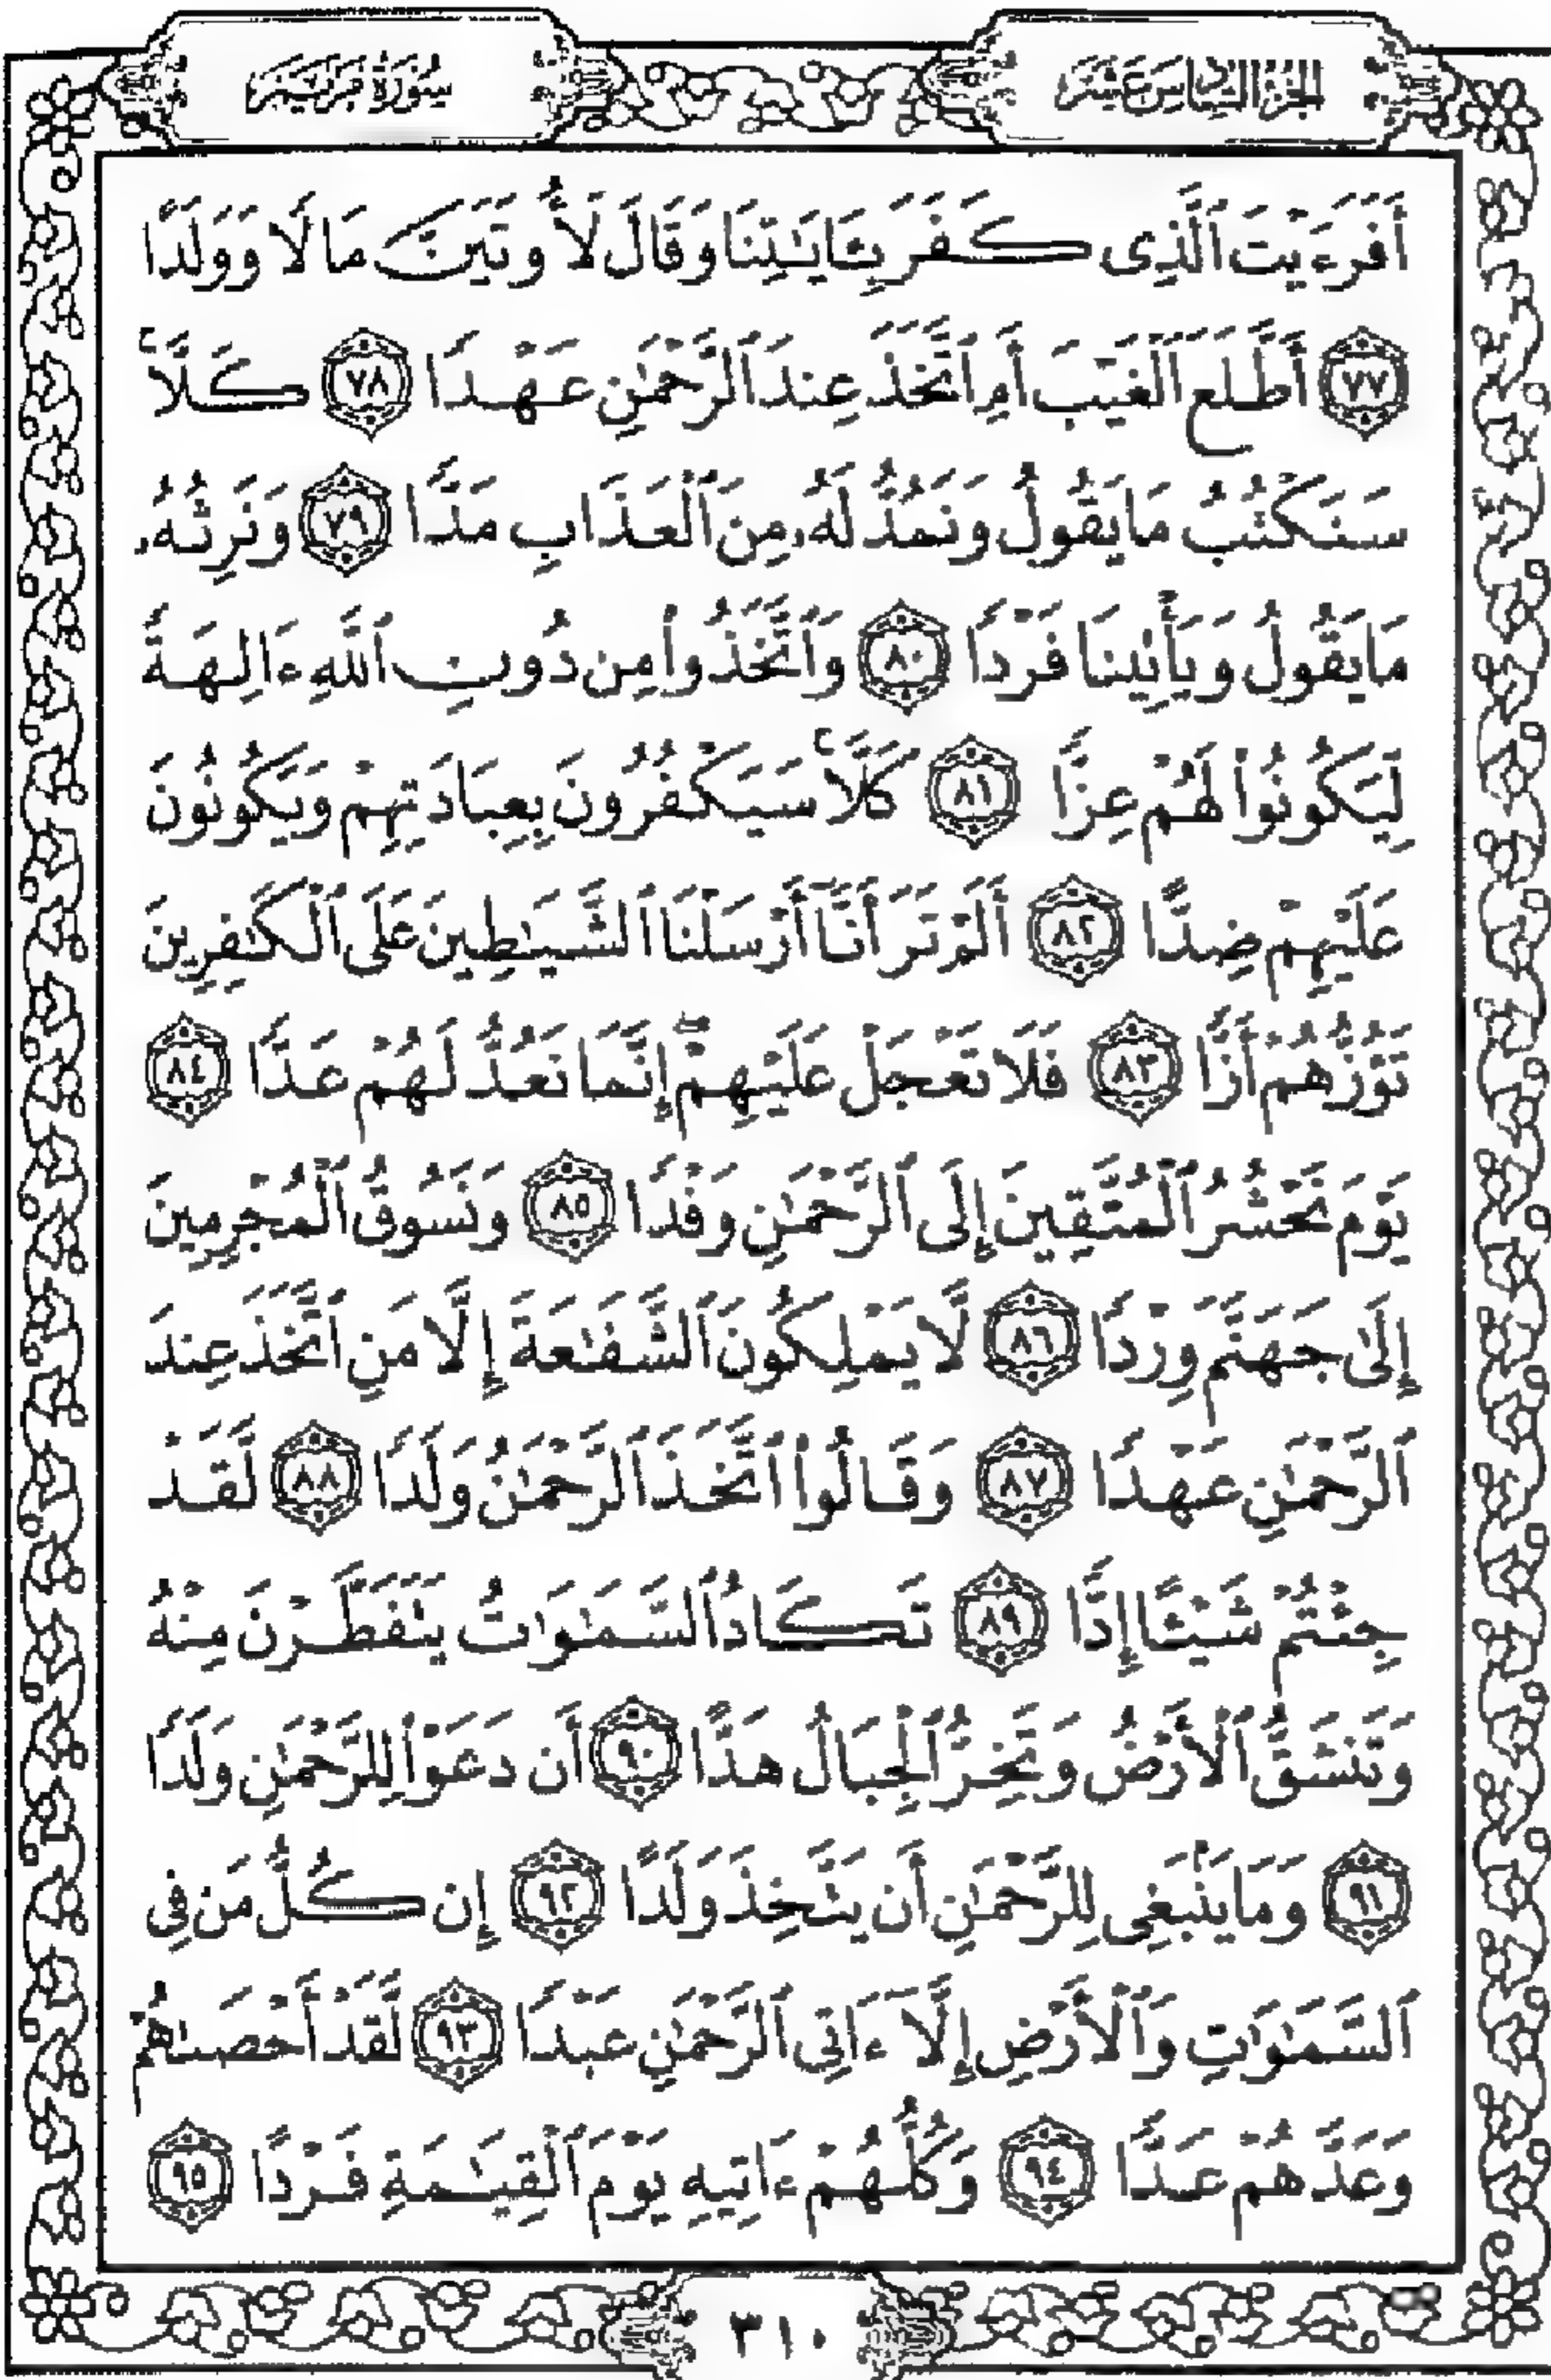 الجزء السادس عشر
سورة مريم
أَفَرَءَيْتَ ٱلَّذِى كَفَرَ بِـَٔايَـٰتِنَا وَقَالَ لَأُوتَيَنَّ مَالًا وَوَلَدًا
٧٧ أَطَّلَعَ ٱلْغَيْبَ أَمِ ٱتَّخَذَ عِندَ ٱلرَّحْمَـٰنِ عَهْدًا ٧٨ كَلَّا ۚ
سَنَكْتُبُ مَا يَقُولُ وَنَمُدُّ لَهُۥ مِنَ ٱلْعَذَابِ مَدًّا ٧٩ وَنَرِثُهُۥ
مَا يَقُولُ وَيَأْتِينَا فَرْدًا ٨٠ وَٱتَّخَذُوا۟ مِن دُونِ ٱللَّهِ ءَالِهَةً
لِّيَكُونُوا۟ لَهُمْ عِزًّا ٨١ كَلَّا ۚ سَيَكْفُرُونَ بِعِبَادَتِهِمْ وَيَكُونُونَ
عَلَيْهِمْ ضِدًّا ٨٢ أَلَمْ تَرَ أَنَّآ أَرْسَلْنَا ٱلشَّيَـٰطِينَ عَلَى ٱلْكَـٰفِرِينَ
تَؤُزُّهُمْ أَزًّا ٨٣ فَلَا تَعْجَلْ عَلَيْهِمْ ۖ إِنَّمَا نَعُدُّ لَهُمْ عَدًّا ٨٤
يَوْمَ نَحْشُرُ ٱلْمُتَّقِينَ إِلَى ٱلرَّحْمَـٰنِ وَفْدًا ٨٥ وَنَسُوقُ ٱلْمُجْرِمِينَ
إِلَىٰ جَهَنَّمَ وِرْدًا ٨٦ لَّا يَمْلِكُونَ ٱلشَّفَـٰعَةَ إِلَّا مَنِ ٱتَّخَذَ عِندَ
ٱلرَّحْمَـٰنِ عَهْدًا ٨٧ وَقَالُوا۟ ٱتَّخَذَ ٱلرَّحْمَـٰنُ وَلَدًا ٨٨ لَّقَدْ
جِئْتُمْ شَيْـًٔا إِدًّا ٨٩ تَكَادُ ٱلسَّمَـٰوَٰتُ يَتَفَطَّرْنَ مِنْهُ
وَتَنشَقُّ ٱلْأَرْضُ وَتَخِرُّ ٱلْجِبَالُ هَدًّا ٩٠ أَن دَعَوْا۟ لِلرَّحْمَـٰنِ وَلَدًا
٩١ وَمَا يَنۢبَغِى لِلرَّحْمَـٰنِ أَن يَتَّخِذَ وَلَدًا ٩٢ إِن كُلُّ مَن فِى
ٱلسَّمَـٰوَٰتِ وَٱلْأَرْضِ إِلَّآ ءَاتِى ٱلرَّحْمَـٰنِ عَبْدًا ٩٣ لَّقَدْ أَحْصَىٰهُمْ
وَعَدَّهُمْ عَدًّا ٩٤ وَكُلُّهُمْ ءَاتِيهِ يَوْمَ ٱلْقِيَـٰمَةِ فَرْدًا ٩٥
٣١٠